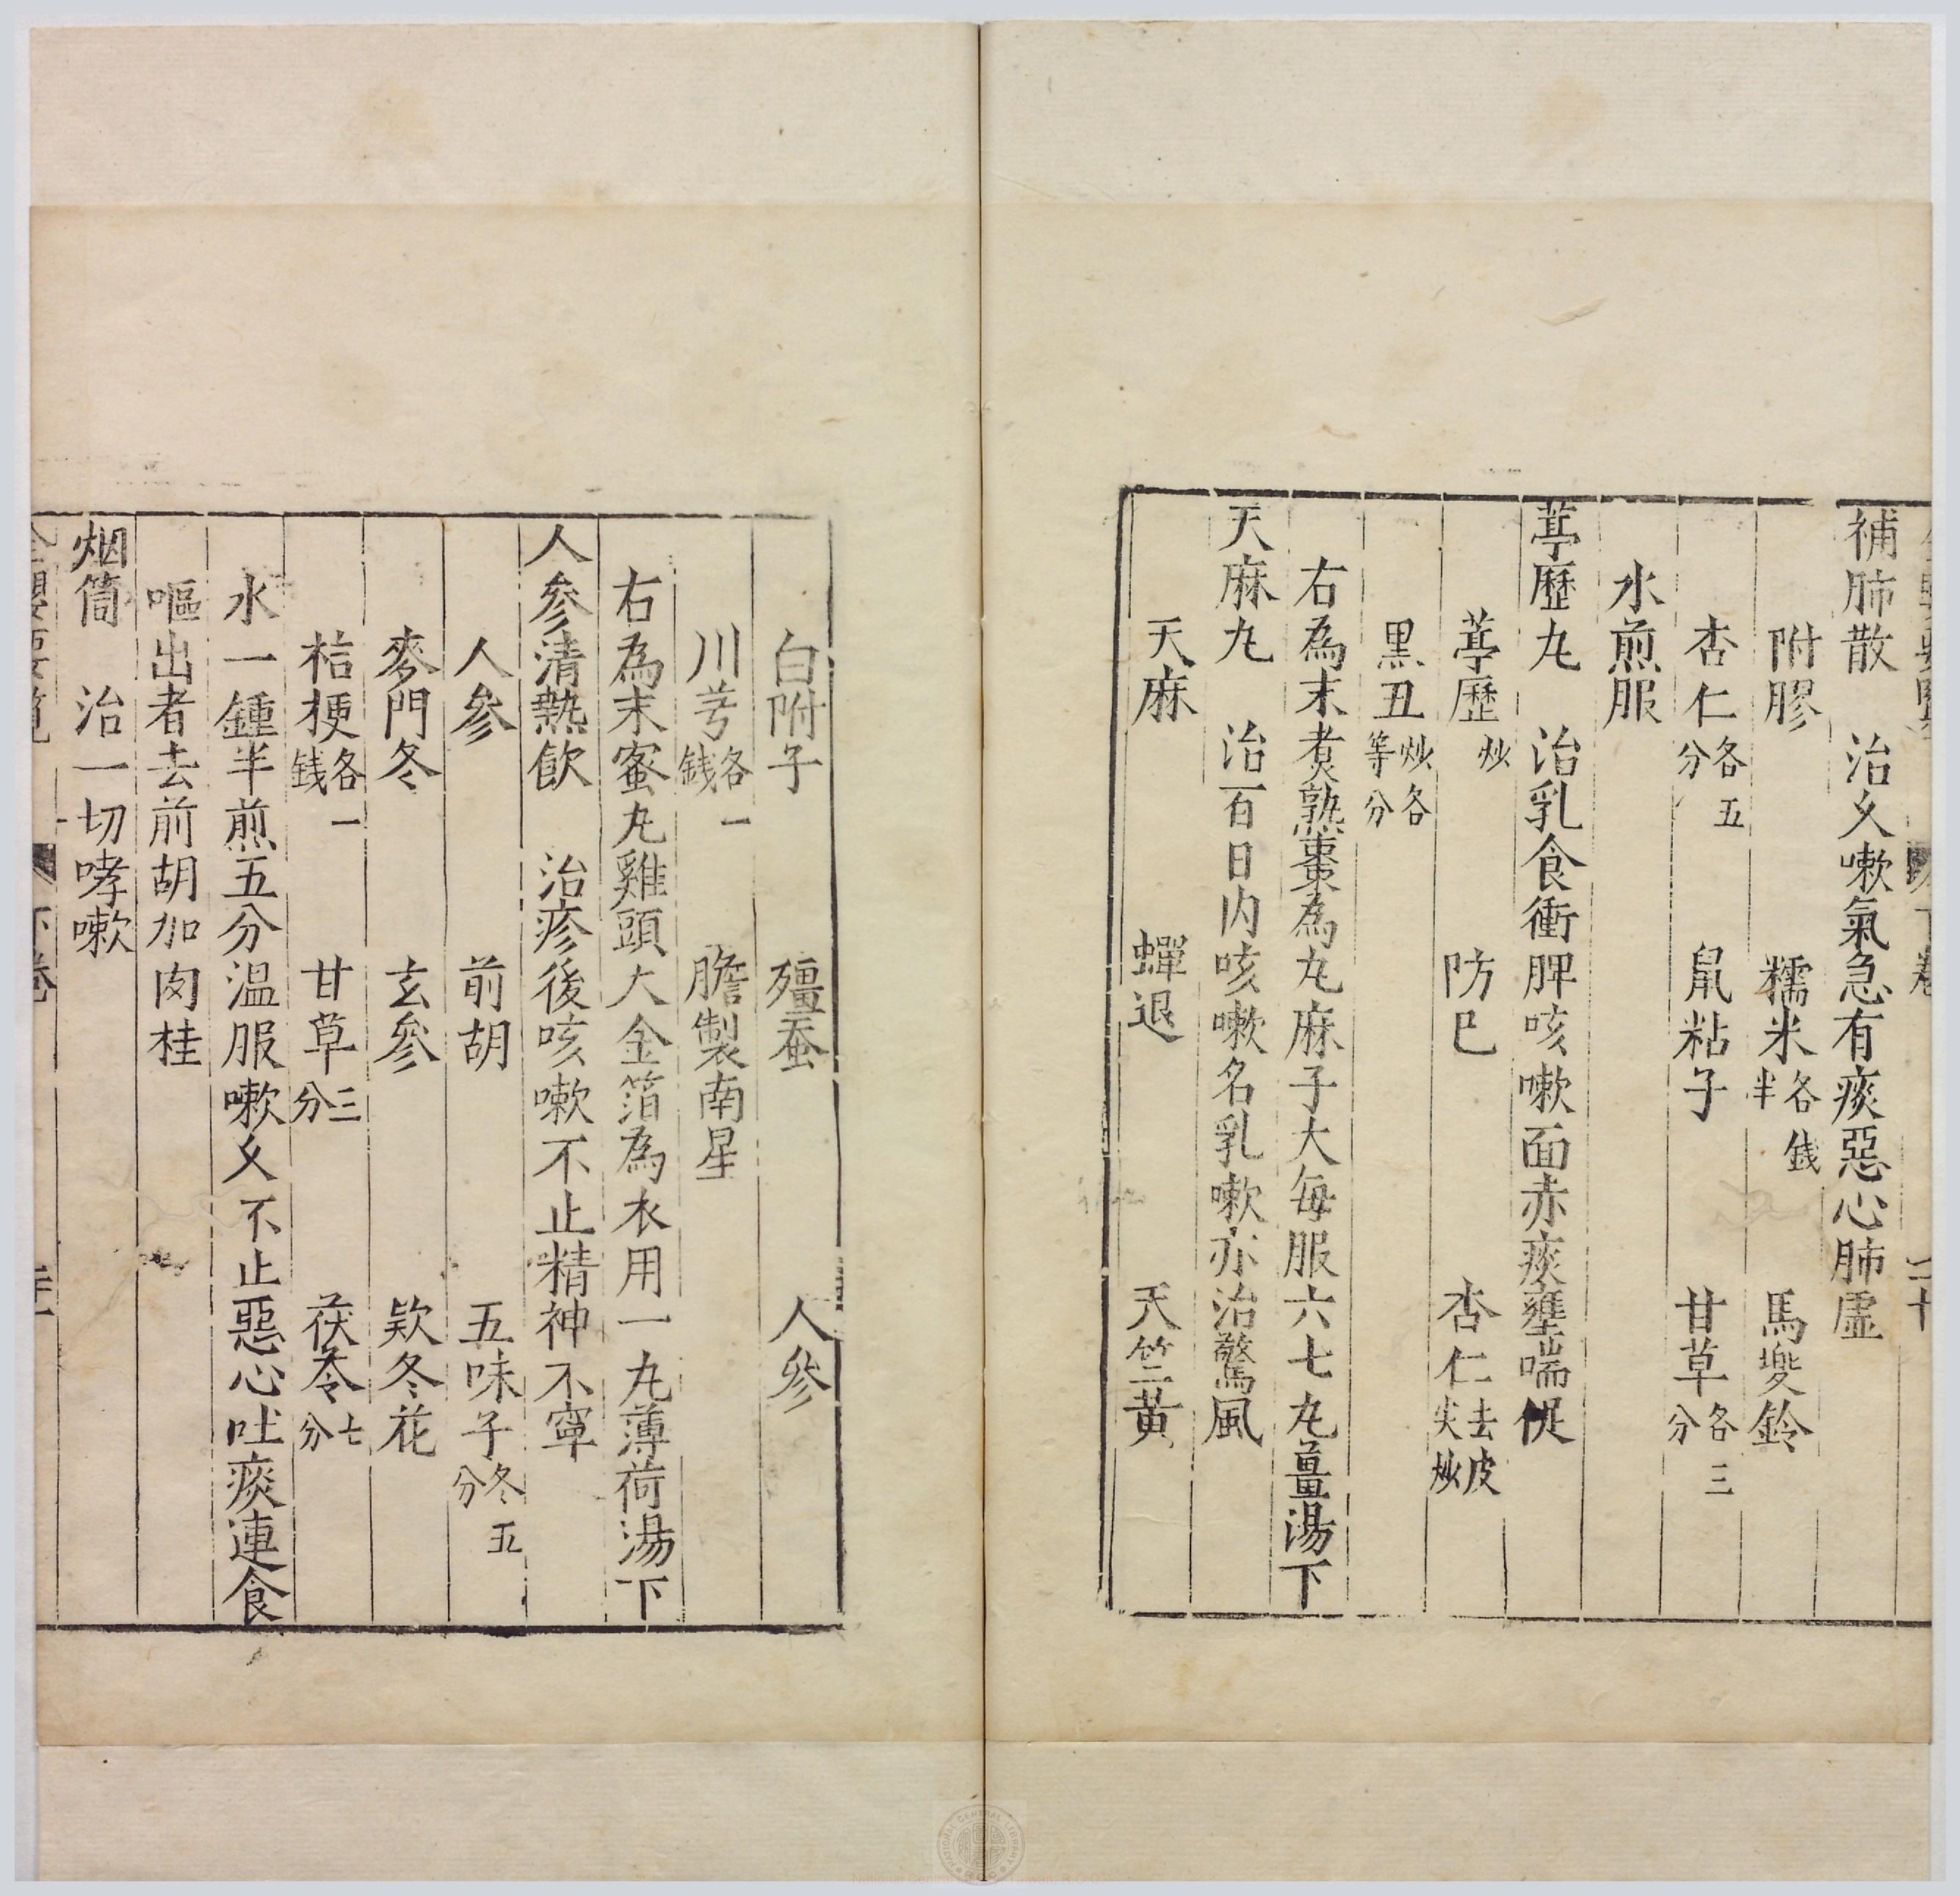 補肺散　治久嗽氣急有痰惡心肺虛
附膠　糯米各錢半　馬兜鈴
杏仁各五分　鼠粘子　甘草各三分
水煎服
葶歷丸　治乳食衝脾咳嗽面赤痰壅喘促
葶歷炒　防已　杏仁去皮尖炒
黑丑炒各等分
右為末煮熟棗為丸麻子大每服六七丸薑湯下
天麻丸　治百日內咳嗽名乳嗽亦治驚風
天麻　蟬退　天竺黃
白附子　殭蚕　人參
川芎各一錢　膽製南星
右為末蜜丸雞頭大金箔為衣用一丸薄荷湯下
人參清熱飲　治疹後咳嗽不止精神不寧
人參　前胡　五味子冬五分
麥門冬　玄參　欵冬花
桔梗各一錢　甘草三分　茯苓七分
水一鍾半煎五分温服嗽久不止惡心吐痰連食
嘔出者去前胡加肉桂
烟筒　治一切哮嗽